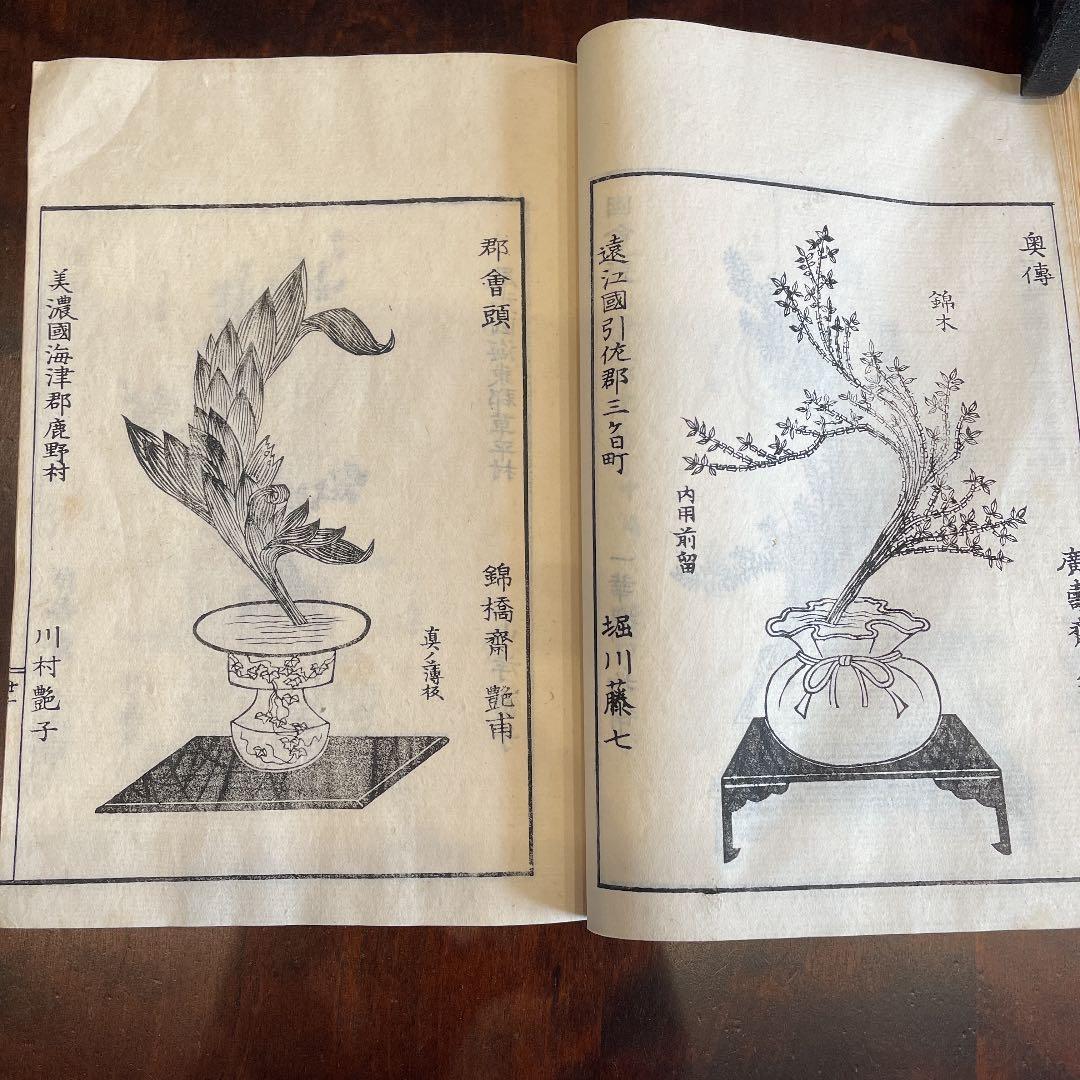 奥傳
錦木
廣壽齋
内用前留
遠江國引佐郡三ケ日町
堀川藤七
郡會頭
錦橋齋艶甫
真ノ薄板
美濃國海津郡鹿野村
川村艶子